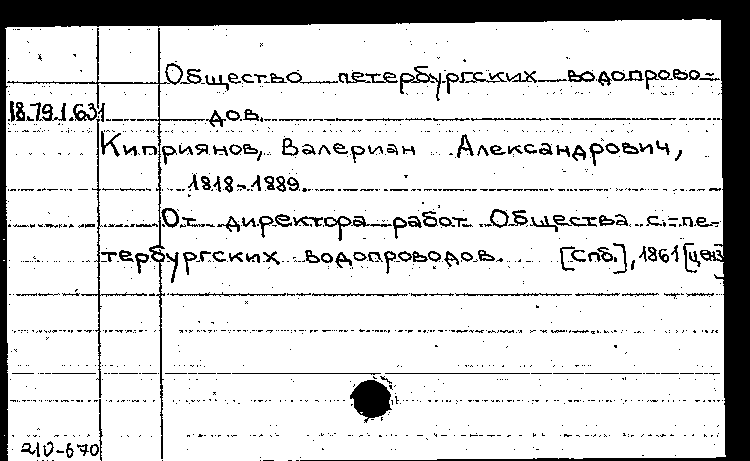 Общество петербургских водопрово-
18.79.1.631 дов.
Киприянов, Валериан Александрович,
1818-1889.
От директора работ Общества с.-пе-
тербургских водопроводов. [Спб.], 1861 [ценз
210-670